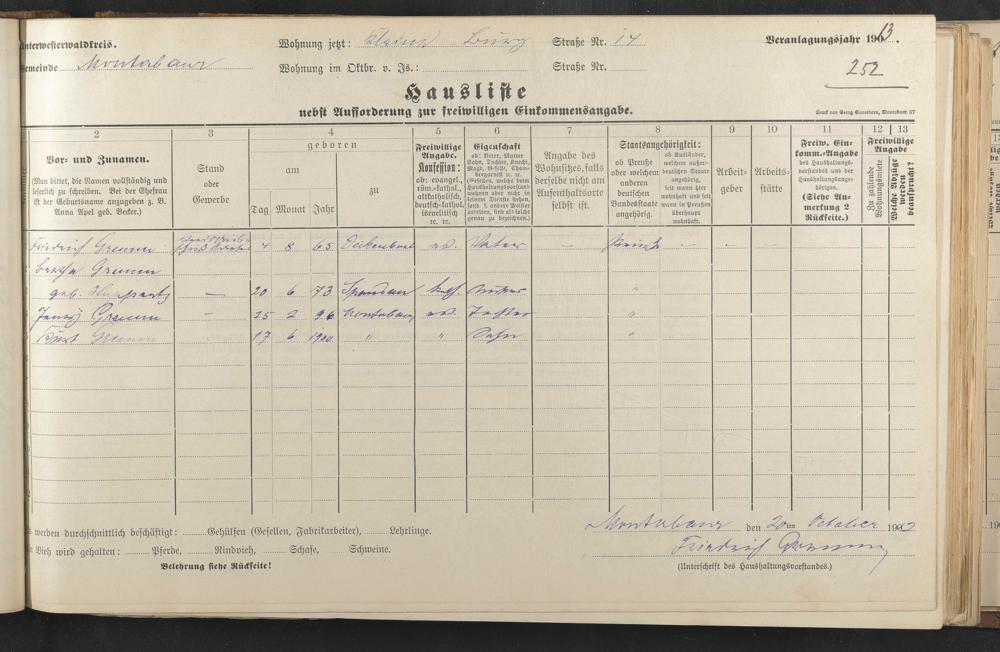 Unterwesterwaldkreis.
Gemeinde Montabaur
Wohnung jetzt: Kleine Burg Straße Nr. 14
Wohnung im Oktbr. v. Js.: Straße Nr.
Veranlagungsjahr 1903.
252
Hausliste
nebst Aufforderung zur freiwilligen Einkommensangabe.
2 3 4 5 6 7 8 9 10 11 12 13
Vor- und Zunamen.
(Man bittet, die Namen vollständig und
leserlich zu schreiben. Bei der Ehefrau
ist der Geburtsname anzugeben z. B.
Anna Apel geb. Becker.)
Stand
oder
Gewerbe
geboren
am
zu
Tag Monat Jahr
Freiwillige
Angabe.
Konfession:
ob: evangel.,
röm.-kathol.,
altkatholisch,
deutsch-kathol.
israelitisch
rc. rc.
Eigenschaft
ob: Vater, Mutter
Sohn, Tochter, Knecht,
Magd, Geselle, Cham-
bregarnist rc. rc.
Angabe des
Wohnsitzes, falls
derselbe nicht am
Aufenthaltsorte
selbst ist.
Staatsangehörigkeit:
ob Preuße
oder welchem
anderen
deutschen
Bundesstaate
angehörig.
ob Ausländer,
welchem außer-
deutschen Staate
angehörig,
seit wann hier
wohnhaft und seit
wann in Preußen
überhaupt
wohnhaft.
Arbeit-
geber
Arbeits-
stätte
Freiw. Ein-
komm.-Angabe
des Haushaltungs-
vorstandes und der
Haushaltungsange-
hörigen.
(Siehe An-
merkung 2
Rückseite.)
Freiwillige
Angabe
Zu zahlende
Wohnungsmiete
Welche Abzüge
werden
beansprucht?
Friedrich Gremm 4 8 65 ev. Vater —
Bertha Gremm
geb. — 20 6 73 Spandau kath. Mutter "
Jenny Gremm — 25 2 96 Montabaur ev. Tochter "
Kurt Gremm — 17 6 1900 " " Sohn "
werden durchschnittlich beschäftigt: Gehülfen (Gesellen, Fabrikarbeiter), Lehrlinge.
Vieh wird gehalten: Pferde, Rindvieh, Schafe, Schweine.
Belehrung siehe Rückseite!
Montabaur den 20ten October 1902
Friedrich Gremm
(Unterschrift des Haushaltungsvorstandes.)